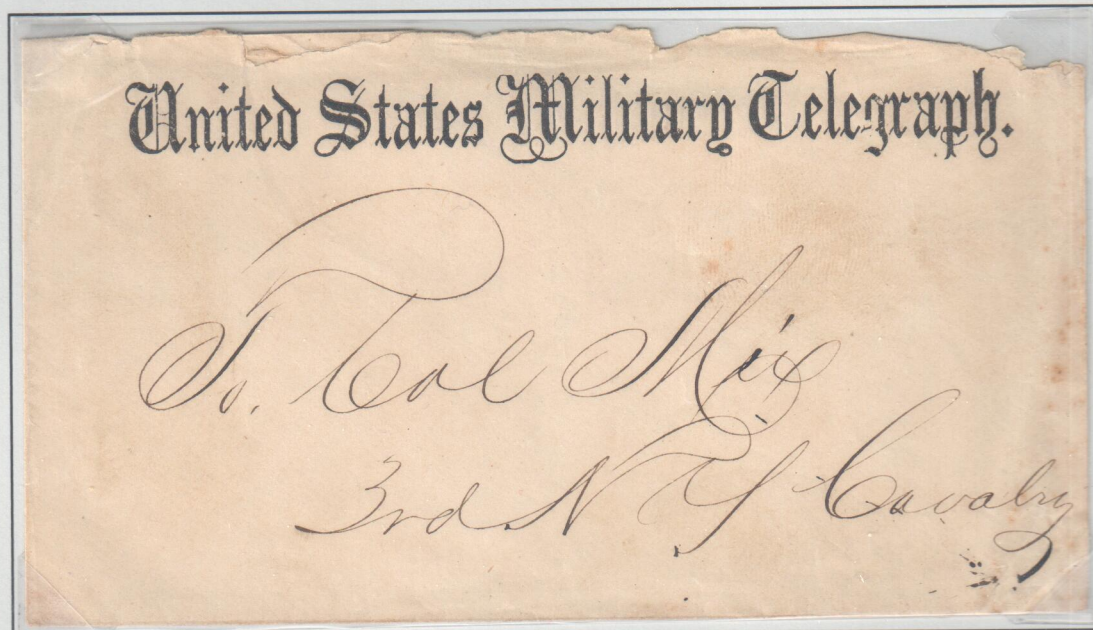 United States Military Telegraph.
To. Col Mix
3rd N Y Cavalry